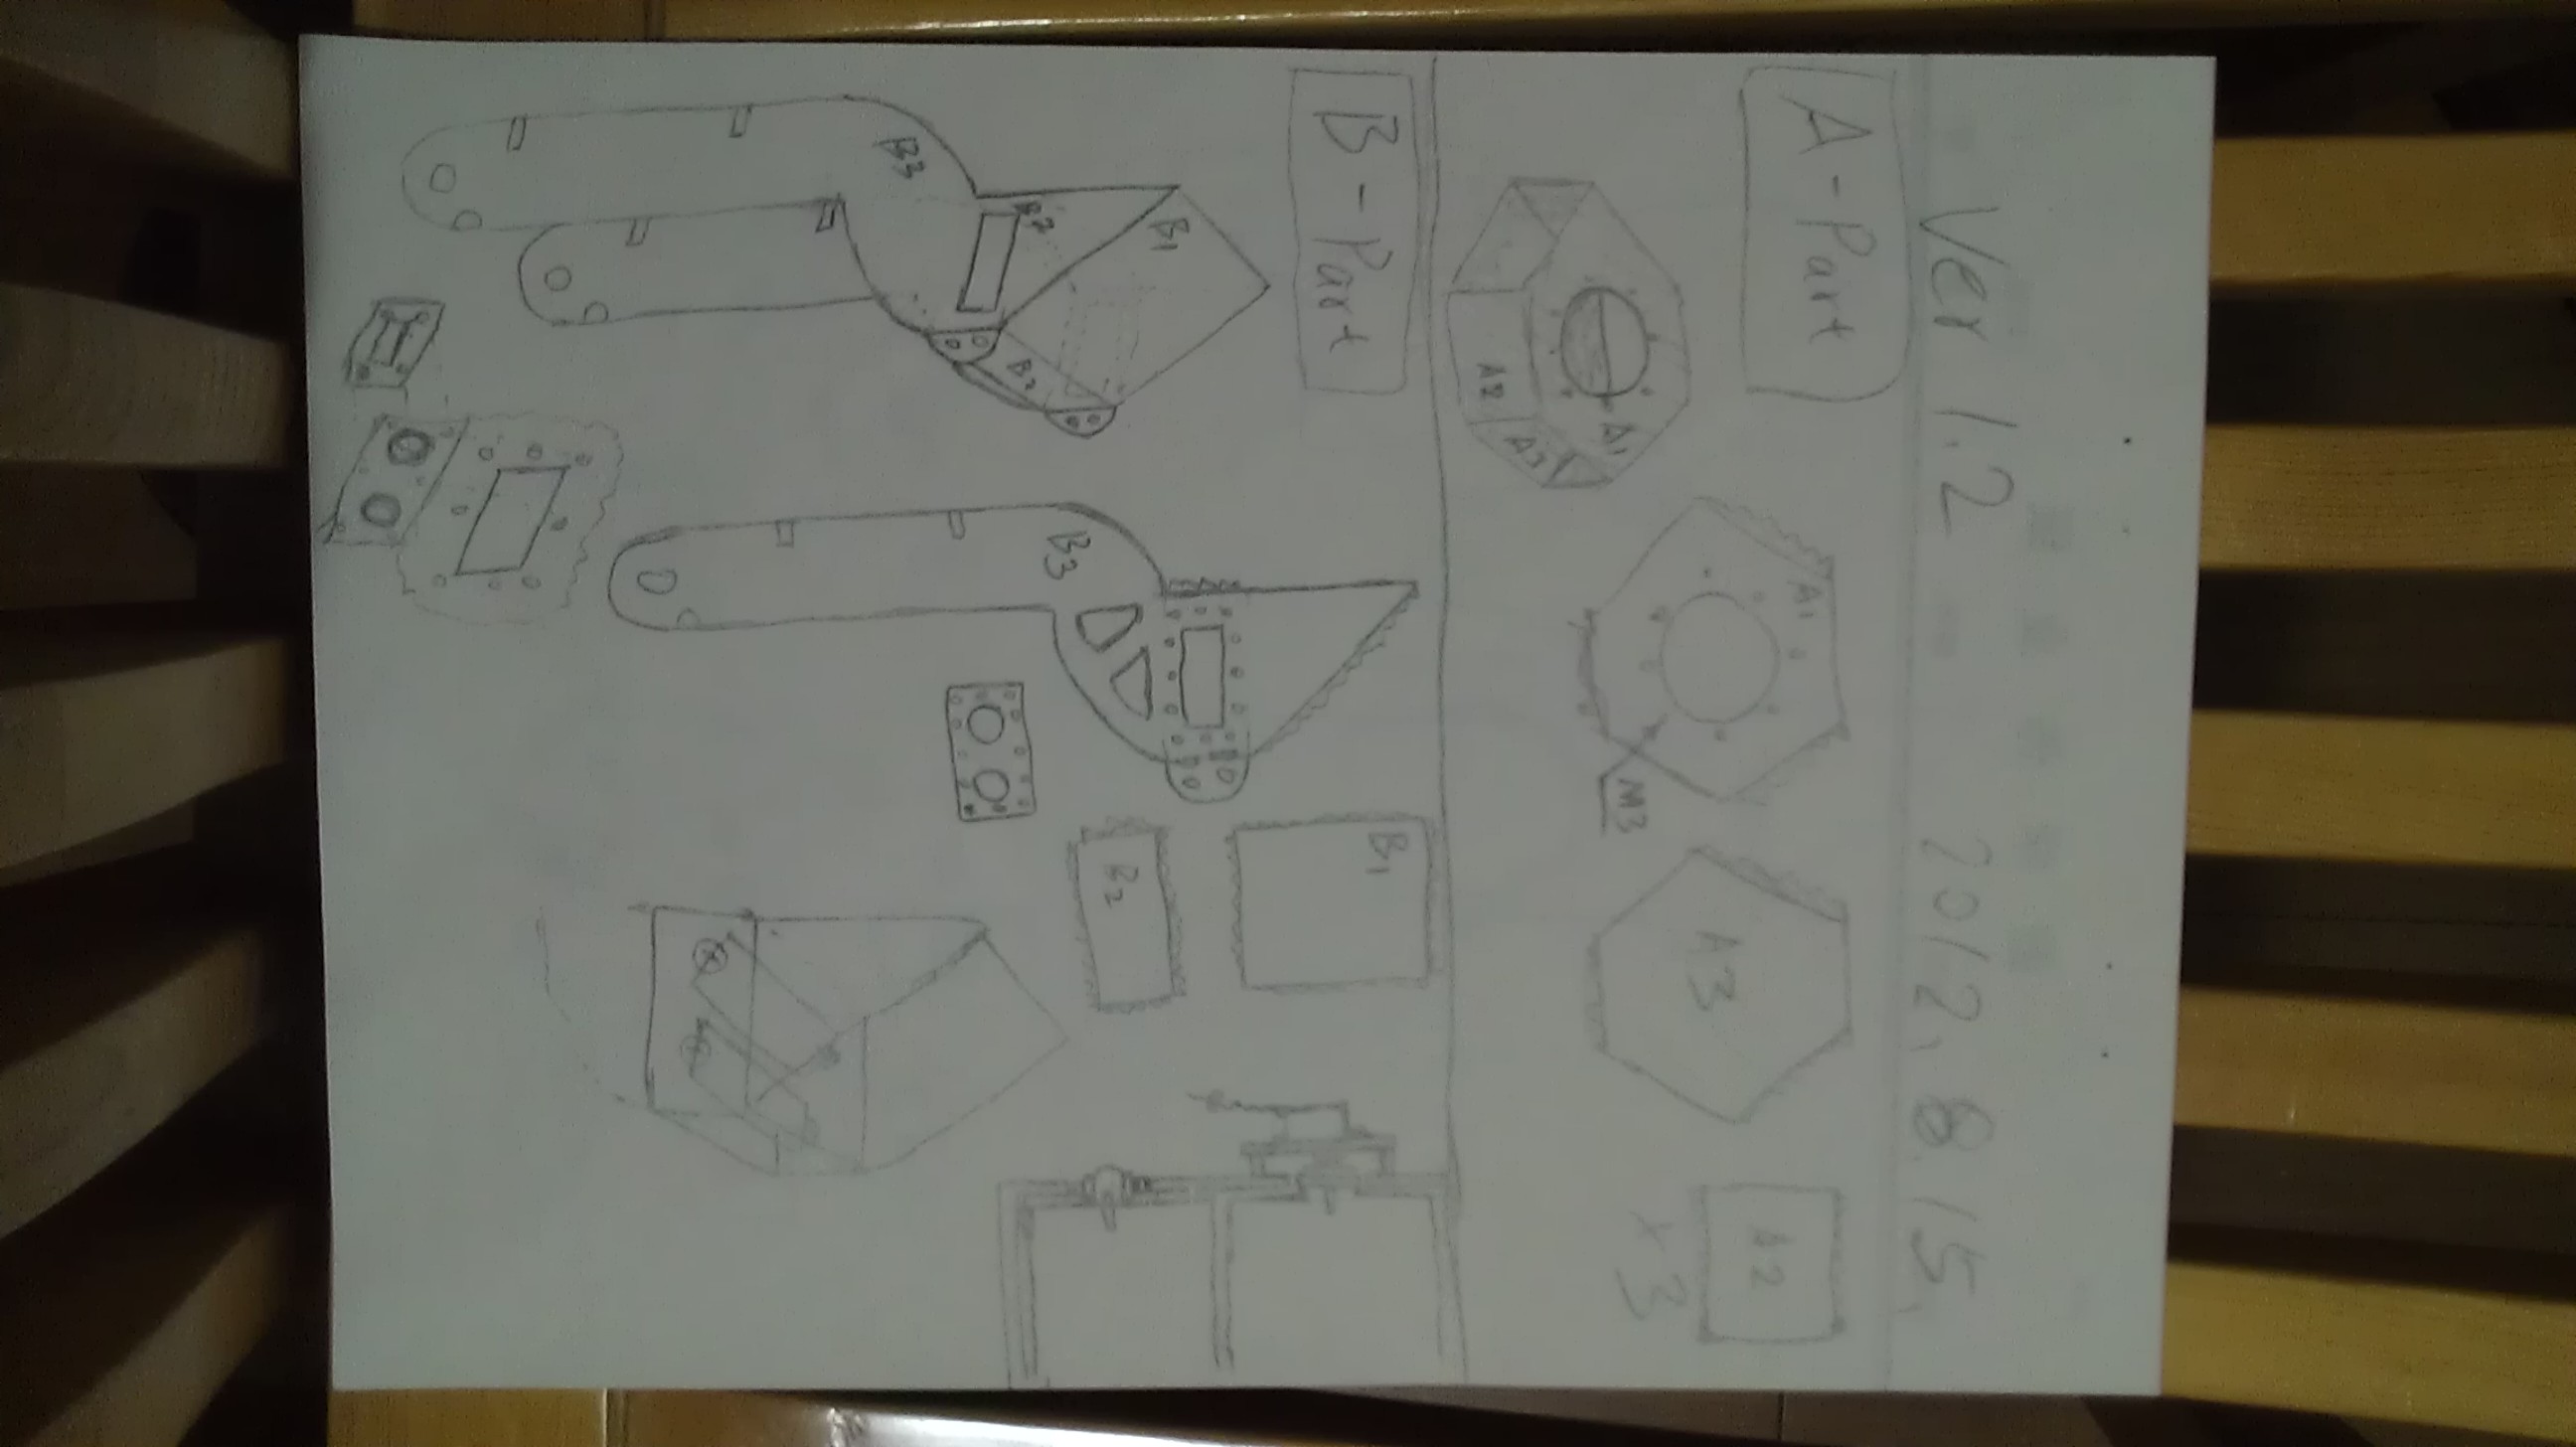 Ver 1.2 2012.8.15.
A-Part
A1
A2
A3
A1
M3
A3
A2
×3
B-Part
B1
B2
B3
B2
B3
B1
B2